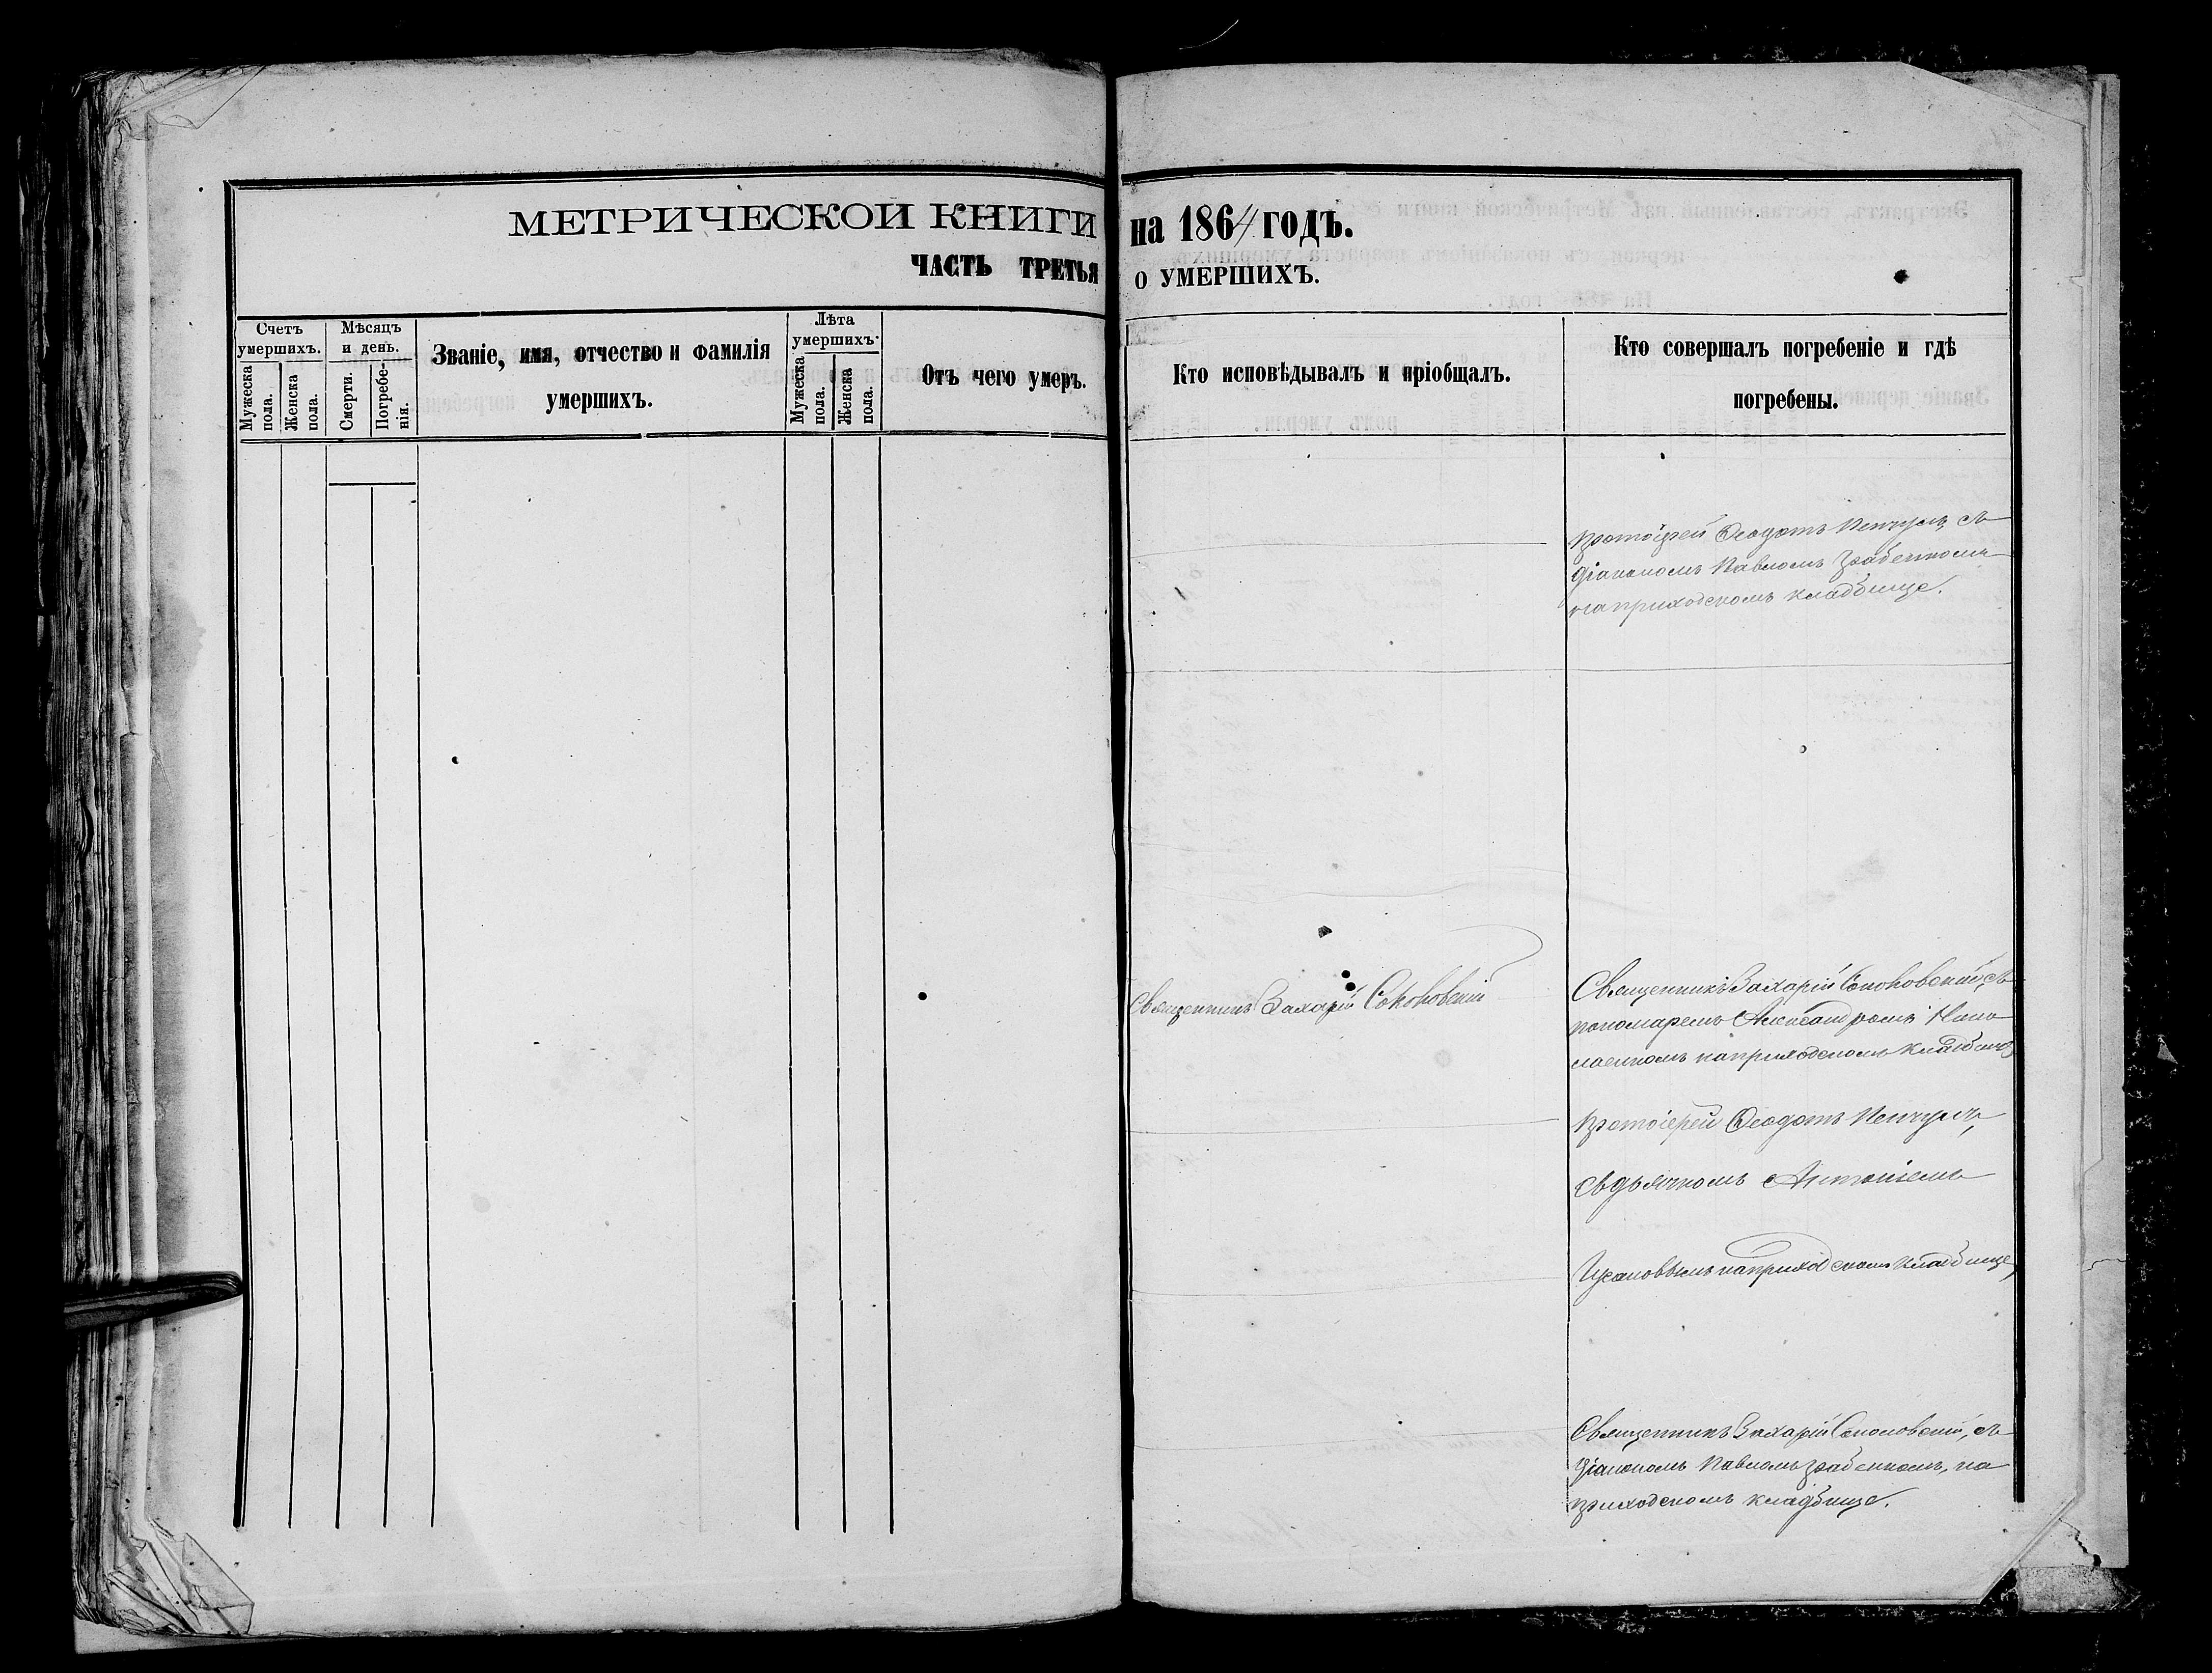 МЕТРИЧЕСКОЙ КНИГИ на 1864 годъ.
ЧАСТЬ ТРЕТЬЯ о УМЕРШИХЪ.
Счетъ умершихъ.
Мужеска пола.
Женска пола.
Мѣсяцъ и день.
Смерти.
Погребенія.
Званіе, имя, отчество и фамилія
умершихъ.
Лѣта умершихъ.
Мужеска пола.
Женска пола.
Отъ чего умеръ.
Кто исповѣдывалъ и пріобщалъ.
Кто совершалъ погребеніе и гдѣ
погребены.
Протоіерей Ѳеодотъ съ
діакономъ Павломъ
на приходскомъ кладбище.
Священникъ Захарій Соколовскій
Священникъ Захарій Соколовскій, съ
пономаремъ Александромъ
на приходскомъ кладбище
Протоіерей Ѳеодотъ
съ дьячкомъ Антоніемъ
на приходскомъ кладбище,
Священникъ Захарій Соколовскій, съ
діакономъ Павломъ на
приходскомъ кладбище.